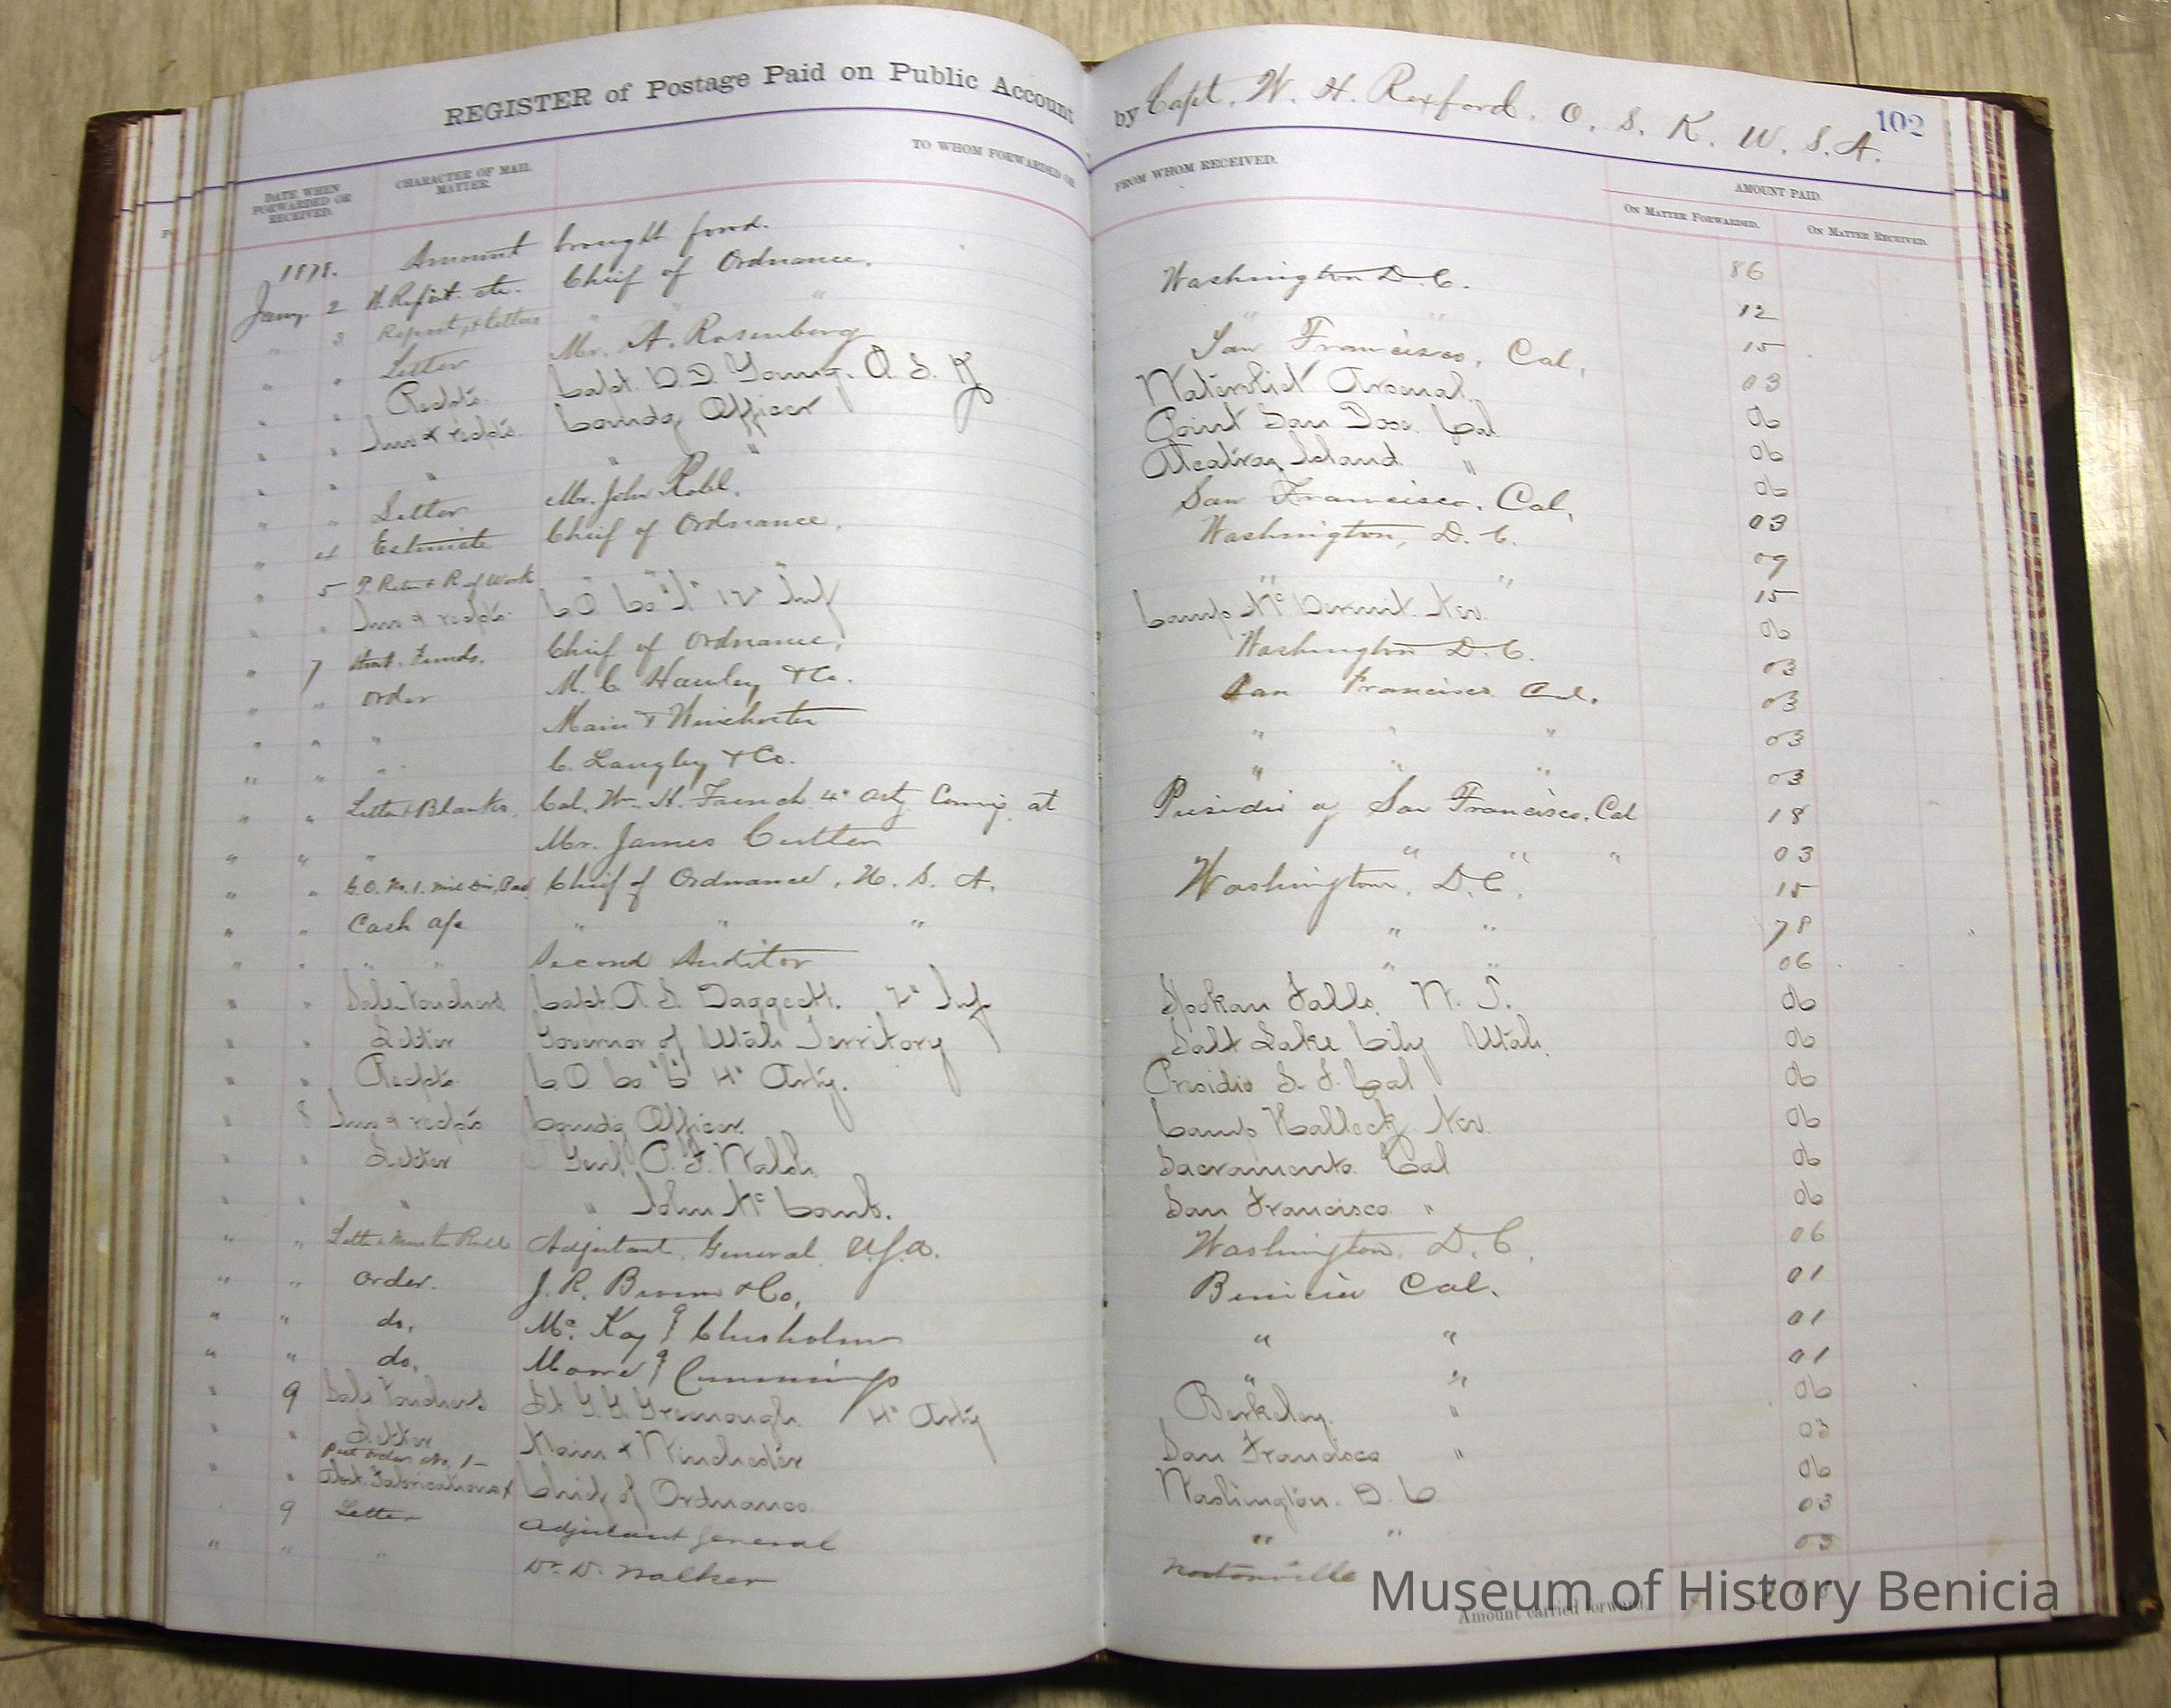 REGISTER of Postage Paid on Public Account by Capt. W. H. Rexford. O. S. K. U. S. A. 102
DATE WHEN FORWARDED OR RECEIVED. CHARACTER OF MAIL MATTER. TO WHOM FORWARDED OR FROM WHOM RECEIVED. AMOUNT PAID.
ON MATTER FORWARDED. ON MATTER RECEIVED.
1878. Amount brought forwd. 86
Jany. 2 etc. Chief of Ordnance. Washington D.C. 12
" 3 Report, & letters " " " " 15
" " Letter Mr. A. Rosenberg San Francisco, Cal, 03
" " Recpts. Capt. D.D. Young. O. S. K Arsenal. 06
" " Invs & recpts. Comdg Officer Point San Jose Cal 06
" " " " " Alcatraz Island " 06
" " Letter Mr. John San Francisco, Cal, 03
" 4 Estimate Chief of Ordnance, Washington, D. C. 09
" 5 " " 15
" " Invs & recpts. C.O. Co "I" 12" Inf Camp Mc Dermit. Nev. 06
" 7 Funds. Chief of Ordnance, Washington D.C. 03
" " Order M. C. Hawley & Co. San Francisco Cal. 03
" " " Main & Winchester " " " 03
" " " C. Langley & Co. " " " 03
" " Letter & Blanks. Col. Wm. H. French 4" Arty Comdg. at Presidio of San Francisco, Cal 18
" " " Mr. James Cutter " " " 03
" " G.O. No. 1. Chief of Ordnance, U. S. A. Washington, D.C. 15
" " Cash a/c " " " " " 78
" " " " Second Auditor " " 06
" " Sale Vouchers Capt A S. Daggett. 2" Inf Spokan Falls W. T. 06
" " Letter Governor of Utah Territory Salt Lake City Utah. 06
" " Recpts C.O. Co "C" 4" Arty. Presidio S. F. Cal 06
" 8 Invs & recpts Comdg Officer Camp Halleck Nev. 06
" " Letter Genl. P. F. Walsh Sacramento Cal 06
" " " " John Mc Comb. San Francisco " 06
" " Letter & Muster Roll Adjutant General U.S.A. Washington, D.C. 06
" " Order. J. R. Brown & Co. Benicia Cal. 01
" " do. Mc. Kay & Chisholm " " 01
" " do. Moore & Cummings " " 01
" 9 Sale Vouchers Lt G.G. Greenough 4" Arty Berkeley. " 06
" " Letter Main & Winchester San Francisco " 03
Post Order No. 1 —
" " Abst. Fabrications & Chief of Ordnance Washington. D. C 06
" 9 Letter Adjutant General " " 03
" " " Dr. D. Walker Nortonville 03
Amount carried forward
Museum of History Benicia